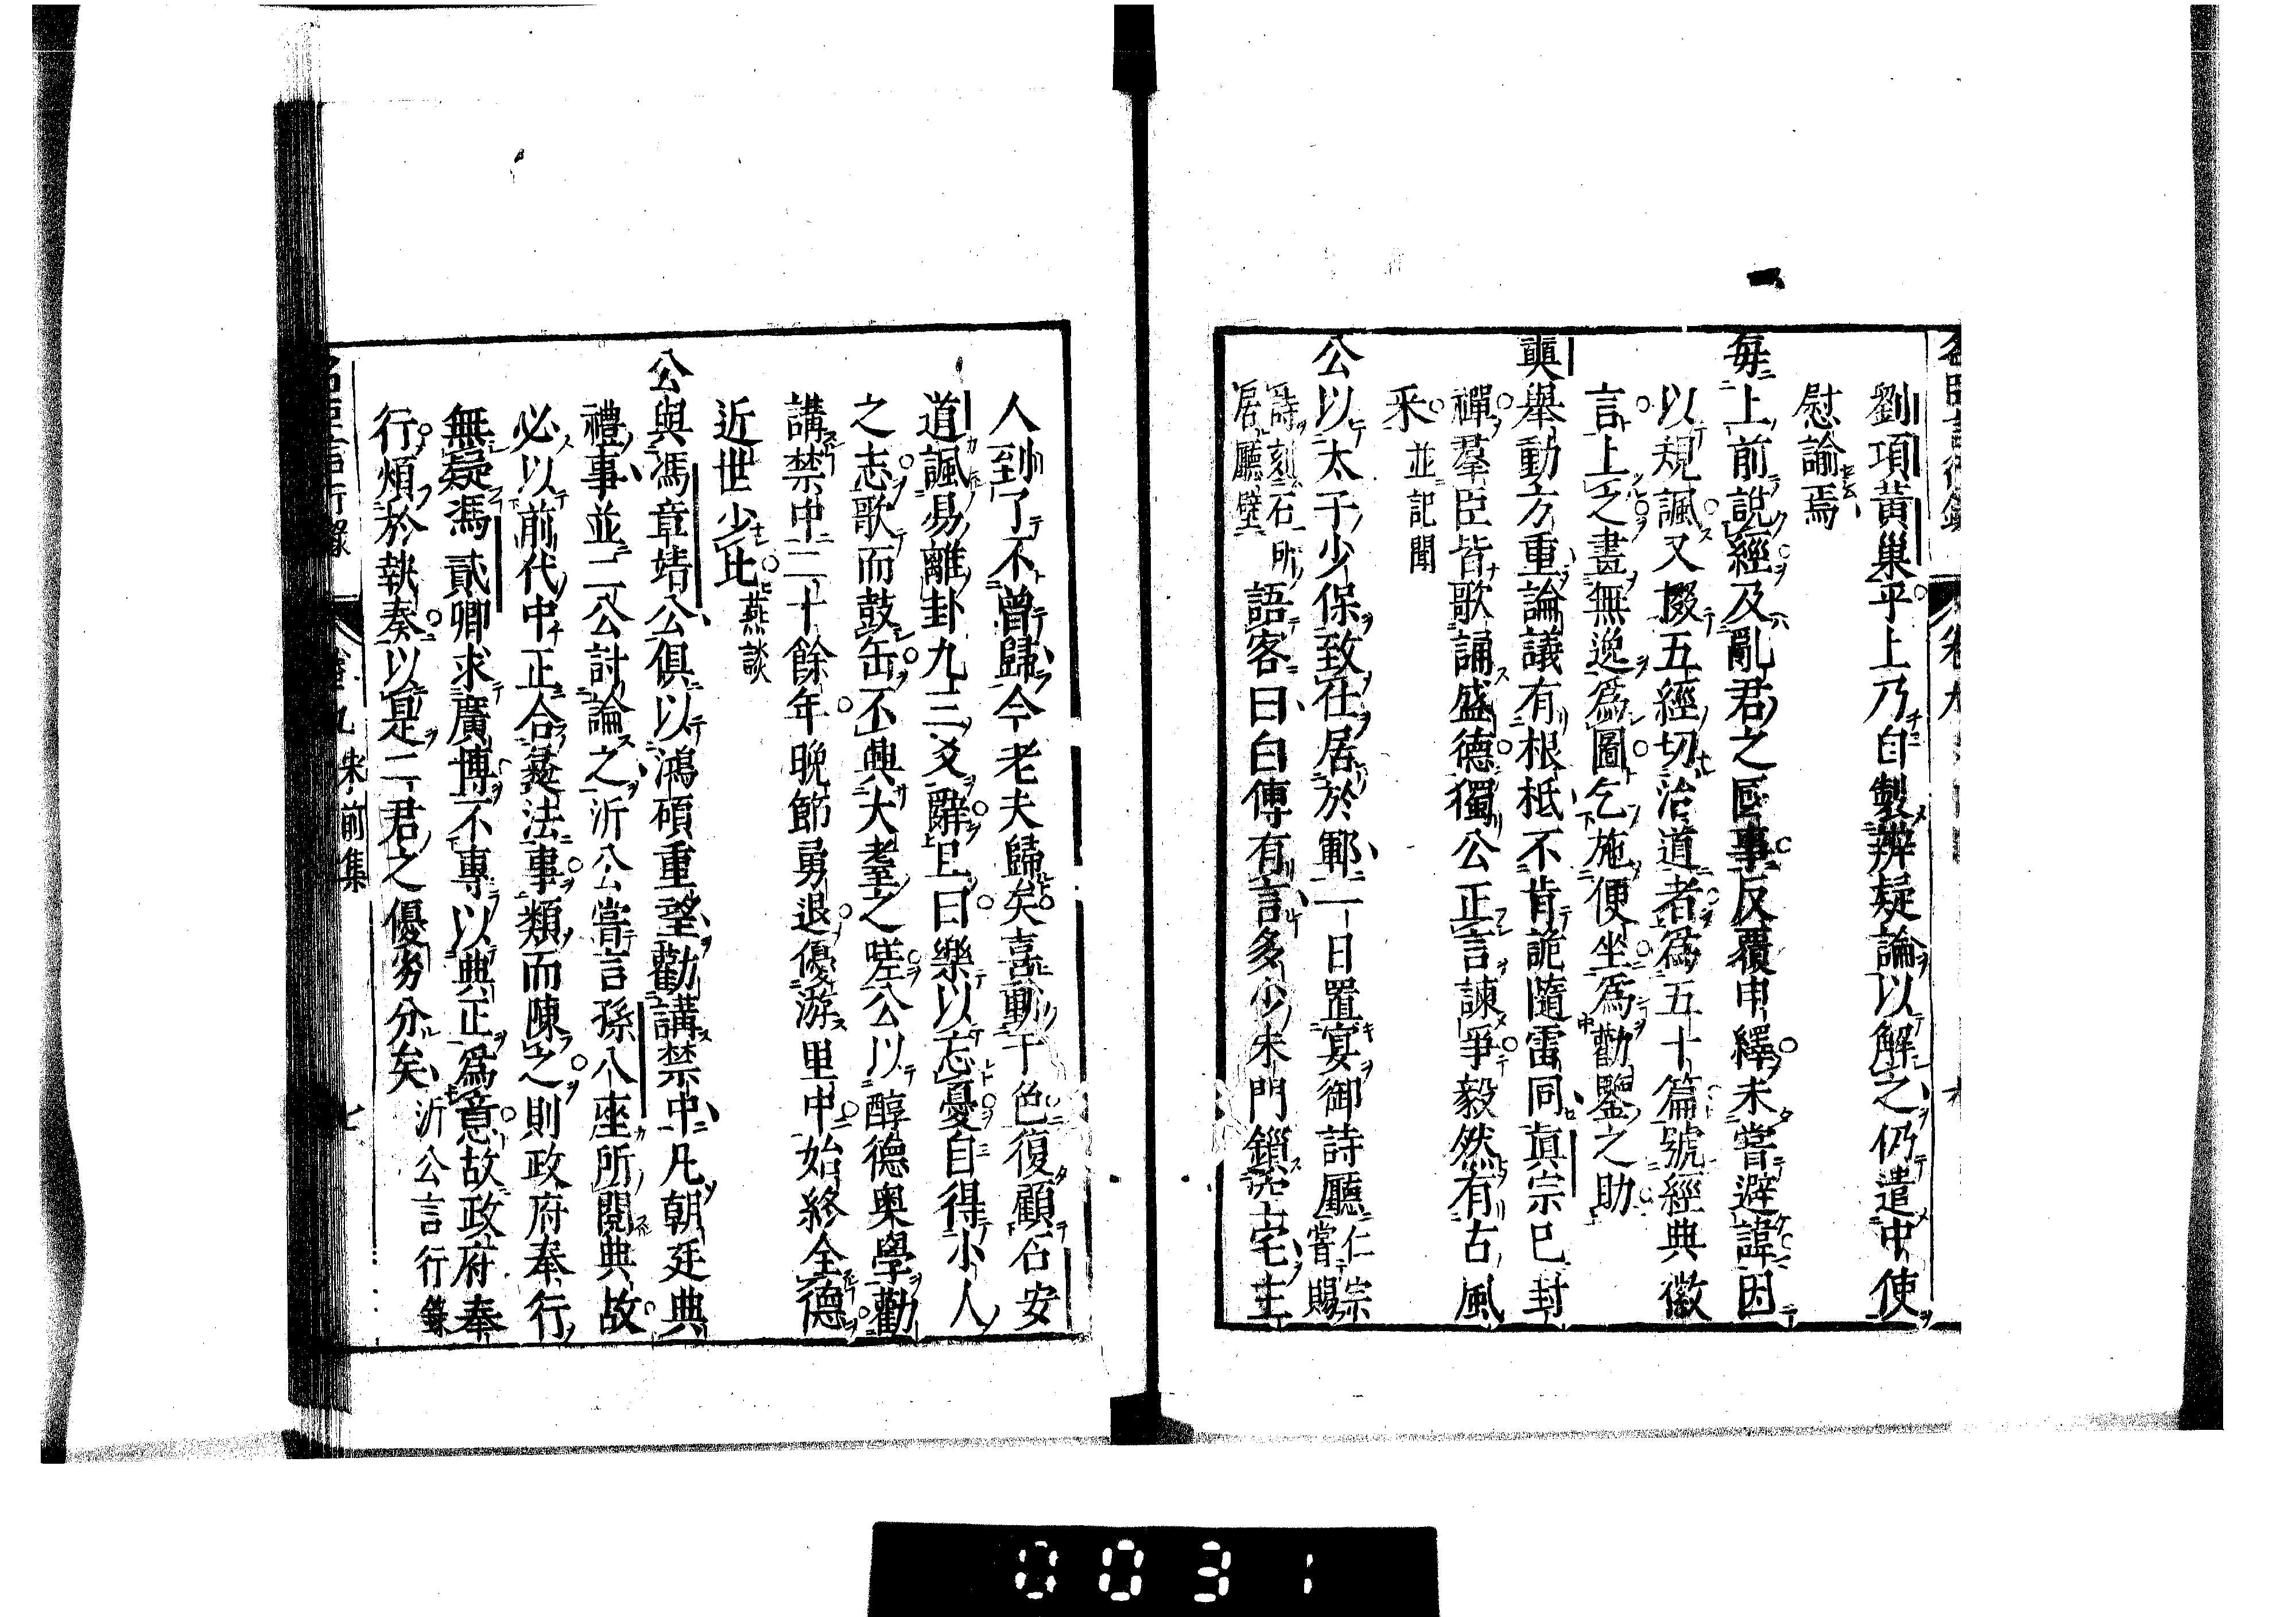 劉項黃巢平上乃自製辨疑論以解之仍遣中使
慰諭焉
毎上前說經及亂君之事反覆申繹未嘗避諱因
以規諷又掇五經切治道者爲五十篇號經典徽
言上之畫無逸爲圖乞施便坐爲勸鑒之助
奭舉動方重論議有根柢不肯詭隨雷同眞宗已封
禪羣臣皆歌誦盛德獨公正言諫爭毅然有古風
采並記聞
公以太子少保致仕居於鄆一日置宴御詩廳仁宗嘗賜
詩刻石所居廳壁語客曰白傅有言多少朱門鎖空宅主
人到了不曾歸今老夫歸矣喜動于色復顧石安
道諷易離卦九三爻辭且曰樂以忘憂自得小人
之志歌而鼓缶不興大耋之嗟公以醇德奧學勸
講禁中二十餘年晚節勇退優游里中始終全德
近世少比燕談
公與馮章靖公俱以鴻碩重望勸講禁中凡朝廷典
禮事並二公討論之沂公嘗言孫八座所閱典故
必以前代中正合彝法事類而陳之則政府奉行
無疑馮貳卿求廣博不專以典正爲意故政府奉
行煩於執奏以是二君之優劣分矣沂公言行錄
名臣言行錄 卷九 宋前集 七